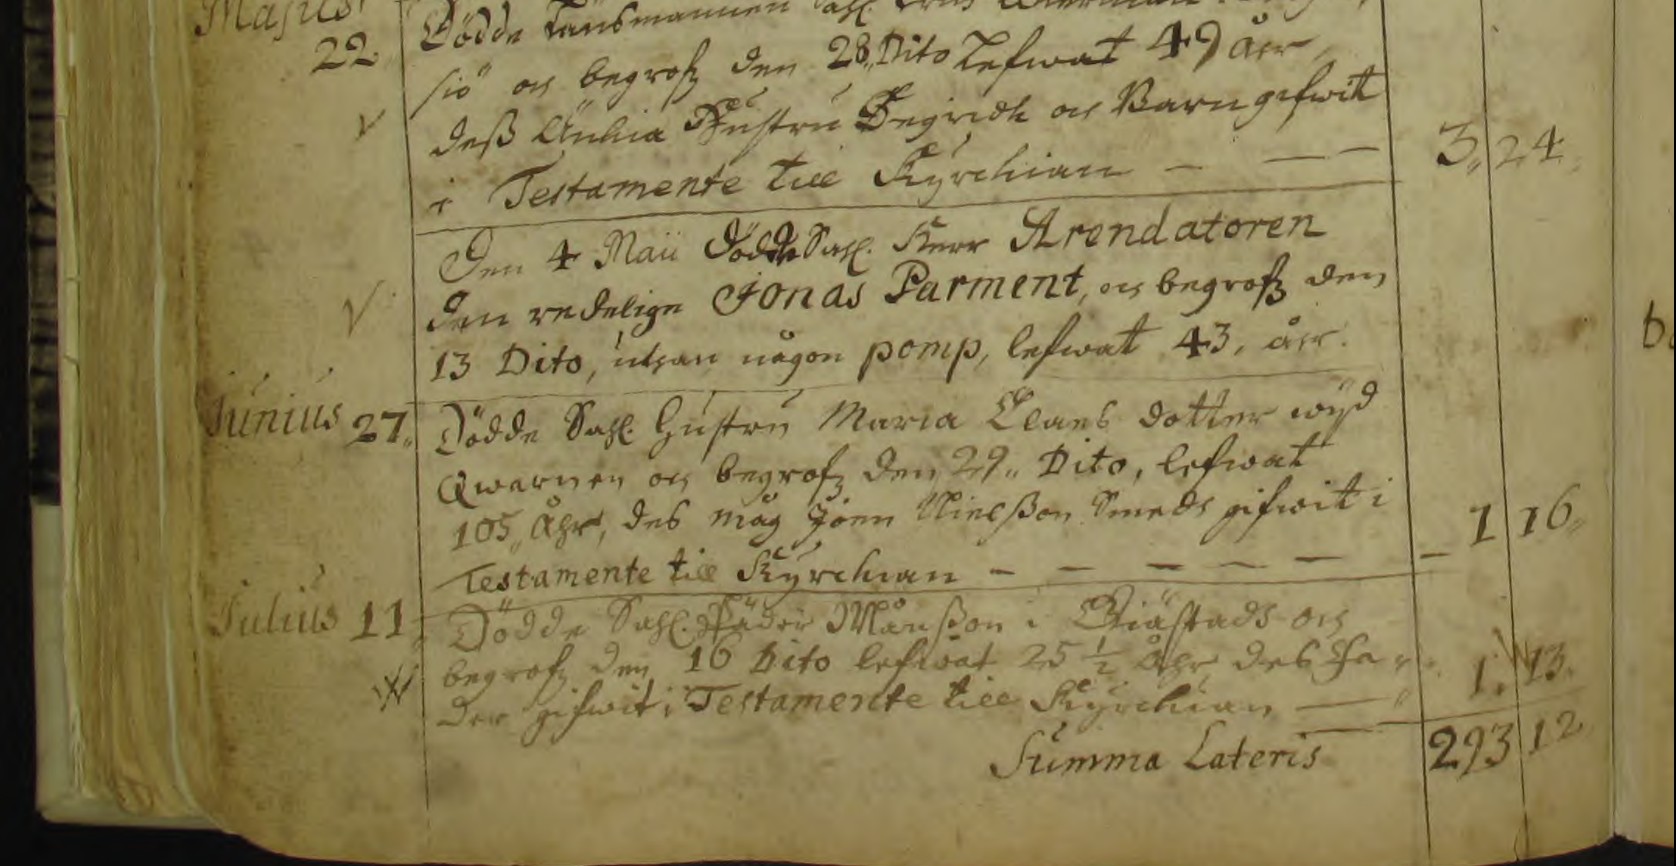 Majus
22. Dödde Länsmannen Sahl.
siö och begrofz den 28,, Dito Lefwat 49 åhr
deß Änkia Hustru Segridh och Barn gifwit
i Testamente till Kyrckian — — — 3,, 24
Den 4 Maii dödde Sahl. Herr Arendatoren
den redelige Jonas Parment, och begrofz den
13 Dito, uthan någon pomp, lefwat 43, åhr.
Junius 27,, Dödde Sahl. Hustru Maria Claes dotter wijd
Qwarnen och begrofz den 29,, Dito, lefwat
105,, Åhr, des måg Joen Nielßon Smedh gifwit i
Testamente till Kyrckian — — — — — 1 16,,
Julius 11,, Dödde Sahl. Päder Månßon i och
begrofz den 16 Dito lefwat 25 1/2 Åhr, des Fa-
der gifwit i Testamente till Kyrckian — 1. 13.
Summa Lateris 293 12